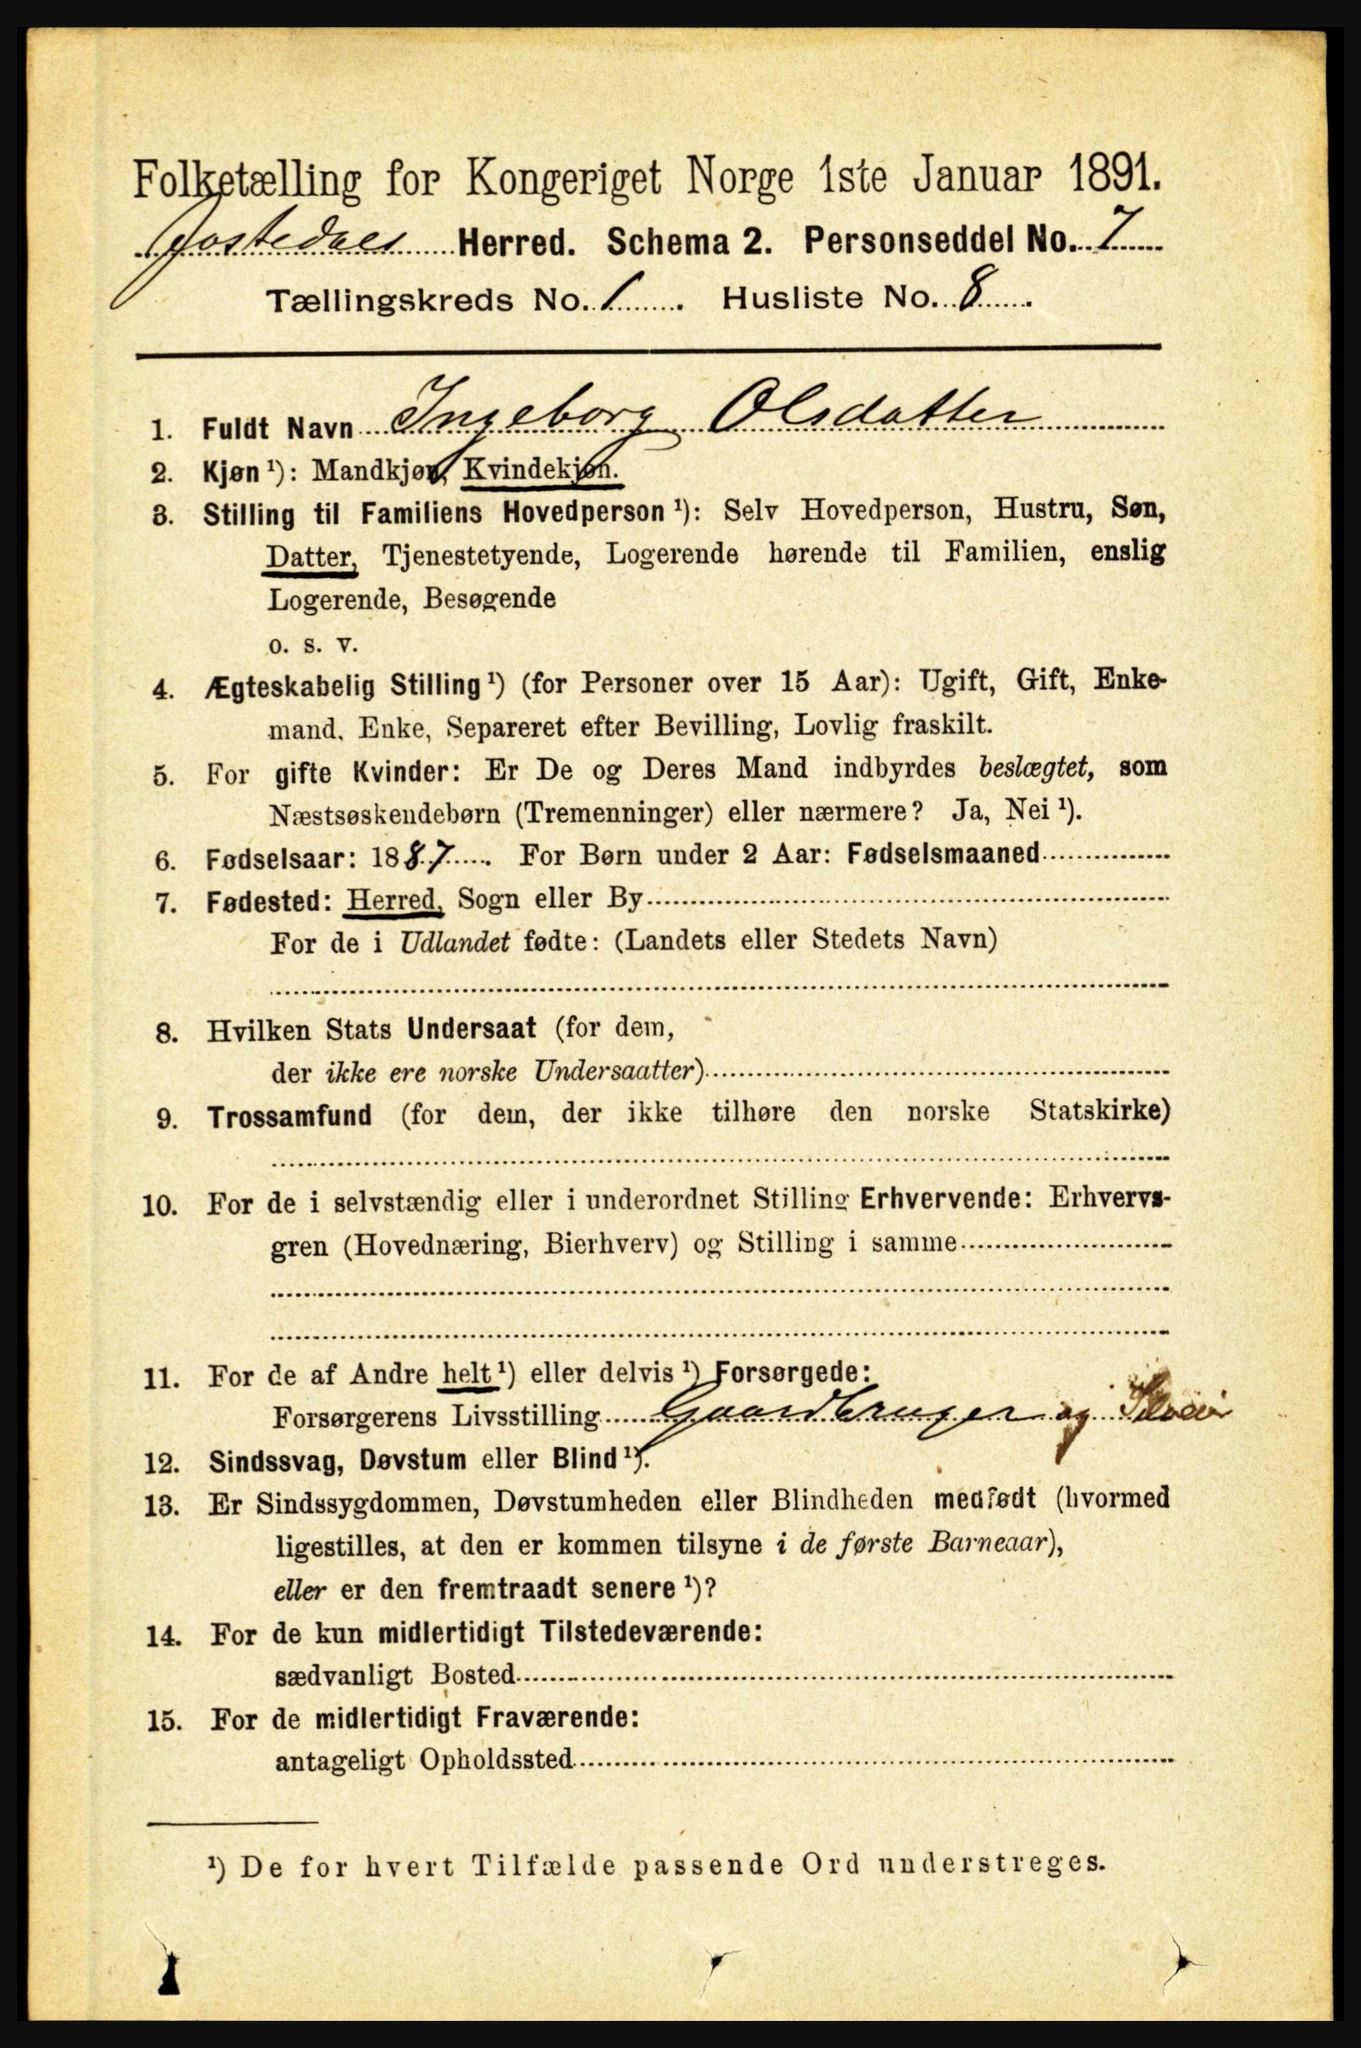 Folketælling for Kongeriget Norge 1ste Januar 1891.
Jostedals Herred. Schema 2. Personseddel No. 7
Tællingskreds No. 1. Husliste No. 8.
1. Fuldt Navn Ingeborg Olsdatter
2. Kjøn¹): Mandkjøn, Kvindekjøn.
3. Stilling til Familiens Hovedperson¹): Selv Hovedperson, Hustru, Søn,
Datter, Tjenestetyende, Logerende hørende til Familien, enslig
Logerende, Besøgende
o. s. v.
4. Ægteskabelig Stilling¹) (for Personer over 15 Aar): Ugift, Gift, Enke-
mand, Enke, Separeret efter Bevilling, Lovlig fraskilt.
5. For gifte Kvinder: Er De og Deres Mand indbyrdes beslægtet, som
Næstsøskendebørn (Tremenninger) eller nærmere? Ja, Nei¹).
6. Fødselsaar: 1887. For Børn under 2 Aar: Fødselsmaaned
7. Fødested: Herred, Sogn eller By
For de i Udlandet fødte: (Landets eller Stedets Navn)
8. Hvilken Stats Undersaat (for dem,
der ikke ere norske Undersaatter)
9. Trossamfund (for dem, der ikke tilhøre den norske Statskirke)
10. For de i selvstændig eller i underordnet Stilling Erhvervende: Erhvervs-
gren (Hovednæring, Bierhverv) og Stilling i samme
11. For de af Andre helt¹) eller delvis¹) Forsørgede:
Forsørgerens Livsstilling Gaardbruger og Selveier
12. Sindssvag, Døvstum eller Blind¹).
13. Er Sindssygdommen, Døvstumheden eller Blindheden medfødt (hvormed
ligestilles, at den er kommen tilsyne i de første Barneaar),
eller er den fremtraadt senere¹)?
14. For de kun midlertidigt Tilstedeværende:
sædvanligt Bosted
15. For de midlertidigt Fraværende:
antageligt Opholdssted
¹) De for hvert Tilfælde passende Ord understreges.